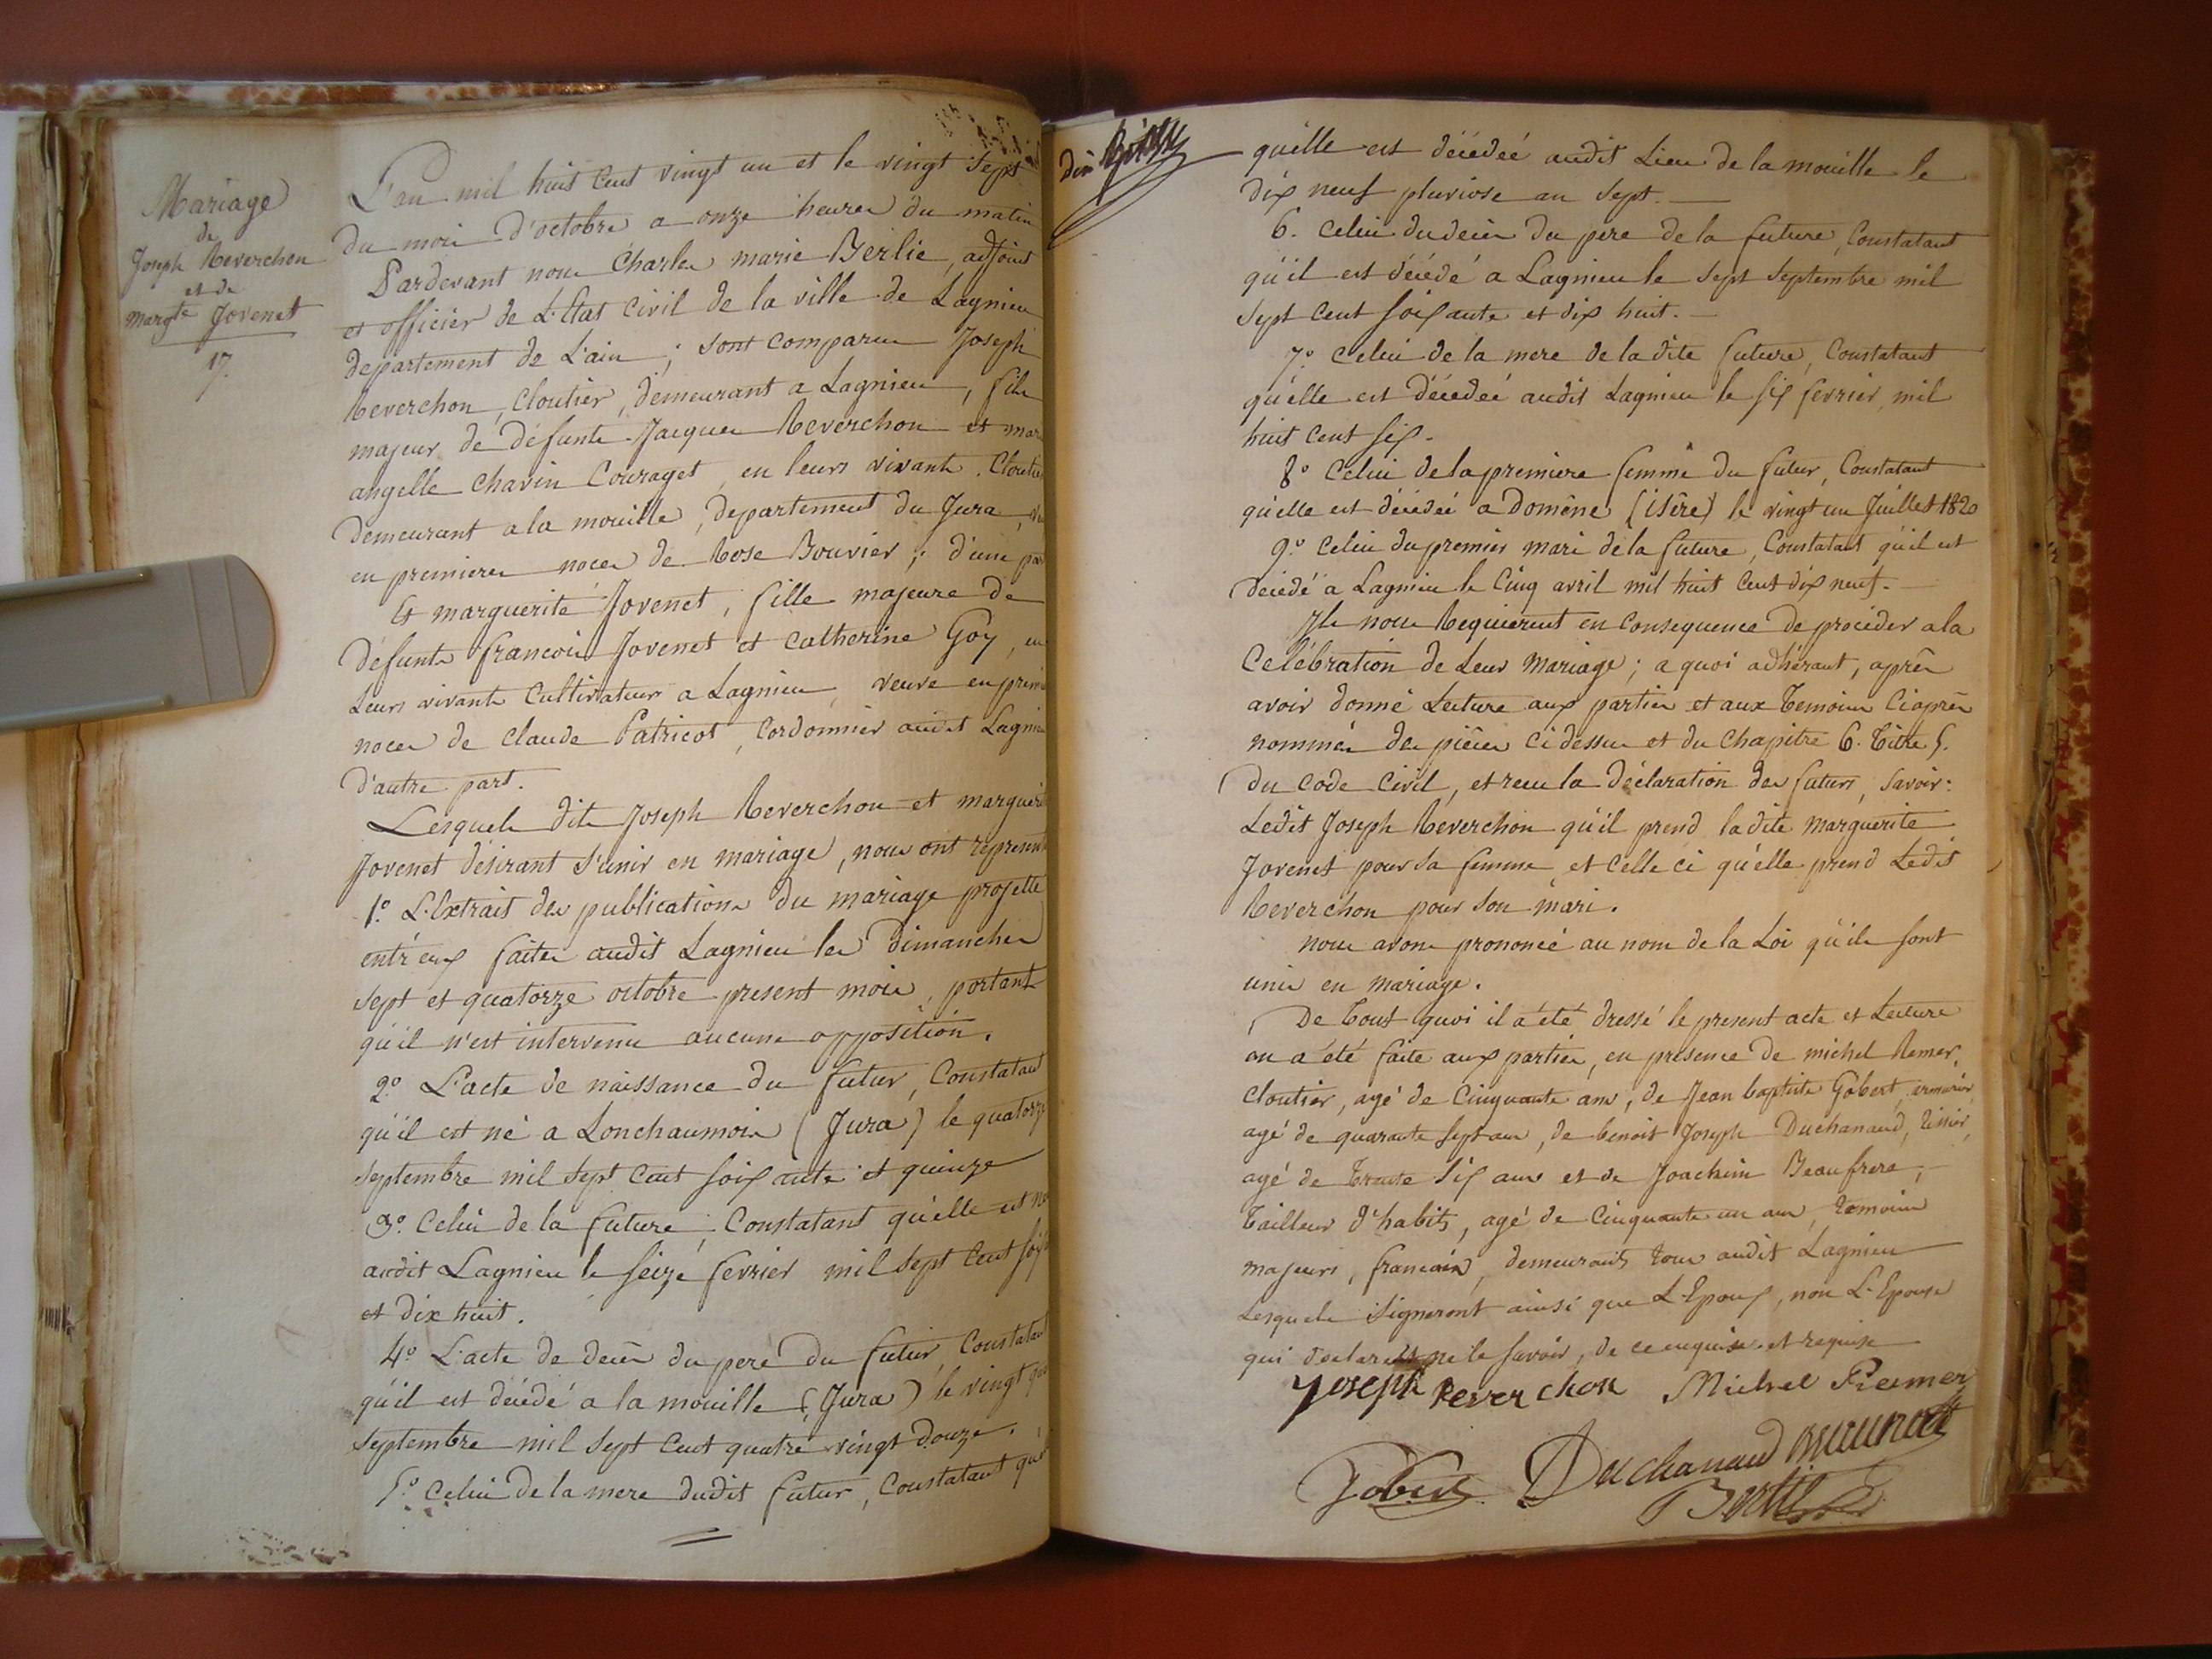 Mariage
de
Joseph Reverchon
et de
Margte Jovenet
17.
L'an mil huit cent vingt un et le vingt sept
du mois d'octobre a onze heures du matin
Pardevant nous Charles marie Berlie, adjoint
et officier de L'Etat Civil de la ville de Lagnieu
departement de L'ain; sont comparus Joseph
Reverchon, Cloutier, demeurant a Lagnieu, fils
majeur de défunts Jacques Reverchon et mar
angelle Chavin Couraget, en leurs vivants Cloutier
demeurant a la mouille, departement du Jura,
en premieres noces de Rose Bouvier; d'une par
Et marguerite Jovenet, fille majeure de
défunts francois Jovenet et Catherine Goy, en
Leurs vivants Cultivateurs a Lagnieu, veuve en premi
noces de Claude Patricot, Cordonnier audit Lagnieu
d'autre part.
Lesquels dits Joseph Reverchon et marguerit
Jovenet désirant s'unir en mariage, nous ont represent
1.º L'Extrait des publications du mariage projetté
entr'eux faites audit Lagnieu les dimanches
sept et quatorze octobre present mois, portant
qu'il n'est intervenu aucune opposition.
2.º L'acte de naissance du futur, Constatant
qu'il est né a Lonchaumois (Jura) le quatorze
septembre mil sept cent soixante et quinze
3.º Celui de la future, Constatant qu'elle est né
audit Lagnieu le seize fevrier mil sept cent soix
et dix huit.
4.º L'acte de decès du pere du futur, Constatant
qu'il est décédé a la mouille (Jura) le vingt
septembre mil sept cent quatre vingt douze.
5.º Celui de la mere dudit futur, Constatant qu'
qu'elle est décédée audit Lieu de la mouille le
dix neuf pluviose an sept.
6. Celui du decès du pere de la future, Constatant
qu'il est décédé a Lagnieu le sept septembre mil
sept cent soixante et dix huit.
7.º Celui de la mere de la dite future, Constatant
qu'elle est décédée audit Lagnieu le six fevrier mil
huit cent six.
8.º Celui de la premiere femme du futur, Constatant
qu'elle est décédée a Domêne (isère) le vingt un Juillet 1820
9.º Celui du premier mari de la future, Constatant qu'il est
décédé a Lagnieu le Cinq avril mil huit cent dix neuf.
Ils nous Requierent en Consequence de procéder a la
Celébration de Leur Mariage; a quoi adhérant, après
avoir donné Lecture aux parties et aux Temoins Ciaprès
nommés des pièces Ci dessus et du Chapitre 6. Titre 5.
du Code Civil, et recu la déclaration des futurs, savoir:
Ledit Joseph Reverchon qu'il prend la dite Marguerite
Jovenet pour sa femme, et Celle ci qu'elle prend Ledit
Reverchon pour son mari.
nous avons prononcé au nom de la Loi qu'ils sont
unis en mariage.
De Tout quoi il a été dressé le present acte et Lecture
en a été faite aux parties, en presence de michel Remer,
cloutier, agé de Cinquante ans, de Jean baptiste Gobert, armurier,
agé de quarante sept ans, de benoit Joseph Duchanaud, Tissier,
agé de Trente Six ans et de Joachim Beaufrere,
Tailleur d'habits, agé de Cinquante un ans, Temoins
majeurs, francais, demeurants tous audit Lagnieu
Lesquels signeront ainsi que L'Epoux, non L'Epouse
qui declare ne le savoir, de ce enquise et requise
Joseph Reverchon Michel Riemer
Gobert Duchanaud
Berlie